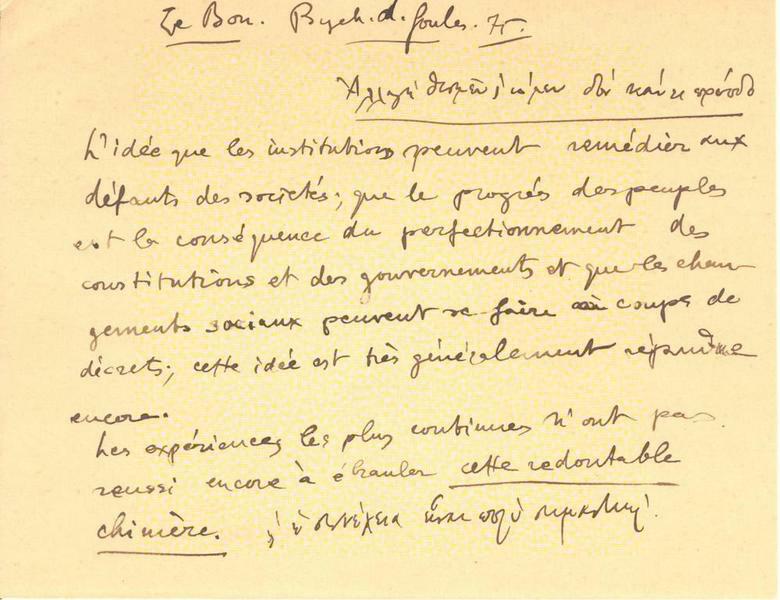 Le Bon. Psych. d. foules. 75.
Ἀλλαγὴ θεσμῶν
L'idée que les institutions peuvent remédier aux
défauts des societés; que le progrés des peuples
est la conséquence du perfectionnement des
constitutions et des gouvernements et que les chan
gements sociaux peuvent se faire à coups de
décrets; cette idée est très généralement répandue
encore.
Les expériences les plus continues n'ont pas
reussi encore à ébranler cette redoutable
chimère. ἡ συνέχεια εἶναι πολὺ σημαντική.